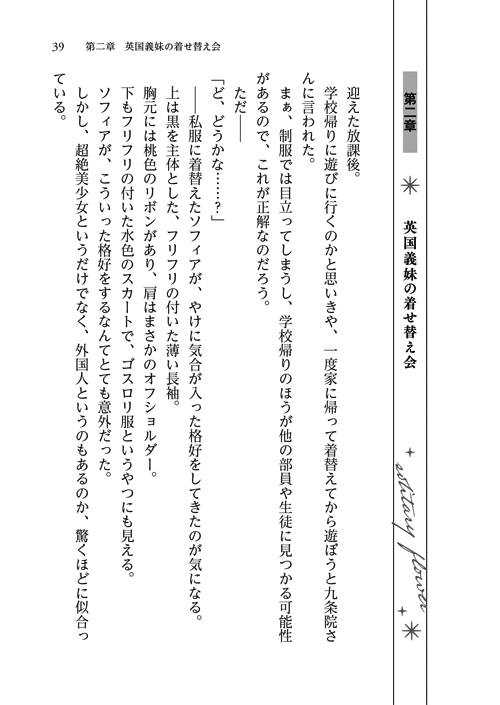 39　第二章　英国義妹の着せ替え会
第二章
英国義妹の着せ替え会
solitary flower
迎えた放課後。
学校帰りに遊びに行くのかと思いきや、一度家に帰って着替えてから遊ぼうと九条院さ
んに言われた。
まぁ、制服では目立ってしまうし、学校帰りのほうが他の部員や生徒に見つかる可能性
があるので、これが正解なのだろう。
ただ――
「ど、どうかな……？」
――私服に着替えたソフィアが、やけに気合が入った格好をしてきたのが気になる。
上は黒を主体とした、フリフリの付いた薄い長袖。
胸元には桃色のリボンがあり、肩はまさかのオフショルダー。
下もフリフリの付いた水色のスカートで、ゴスロリ服というやつにも見える。
ソフィアが、こういった格好をするなんてとても意外だった。
しかし、超絶美少女というだけでなく、外国人というのもあるのか、驚くほどに似合っ
ている。